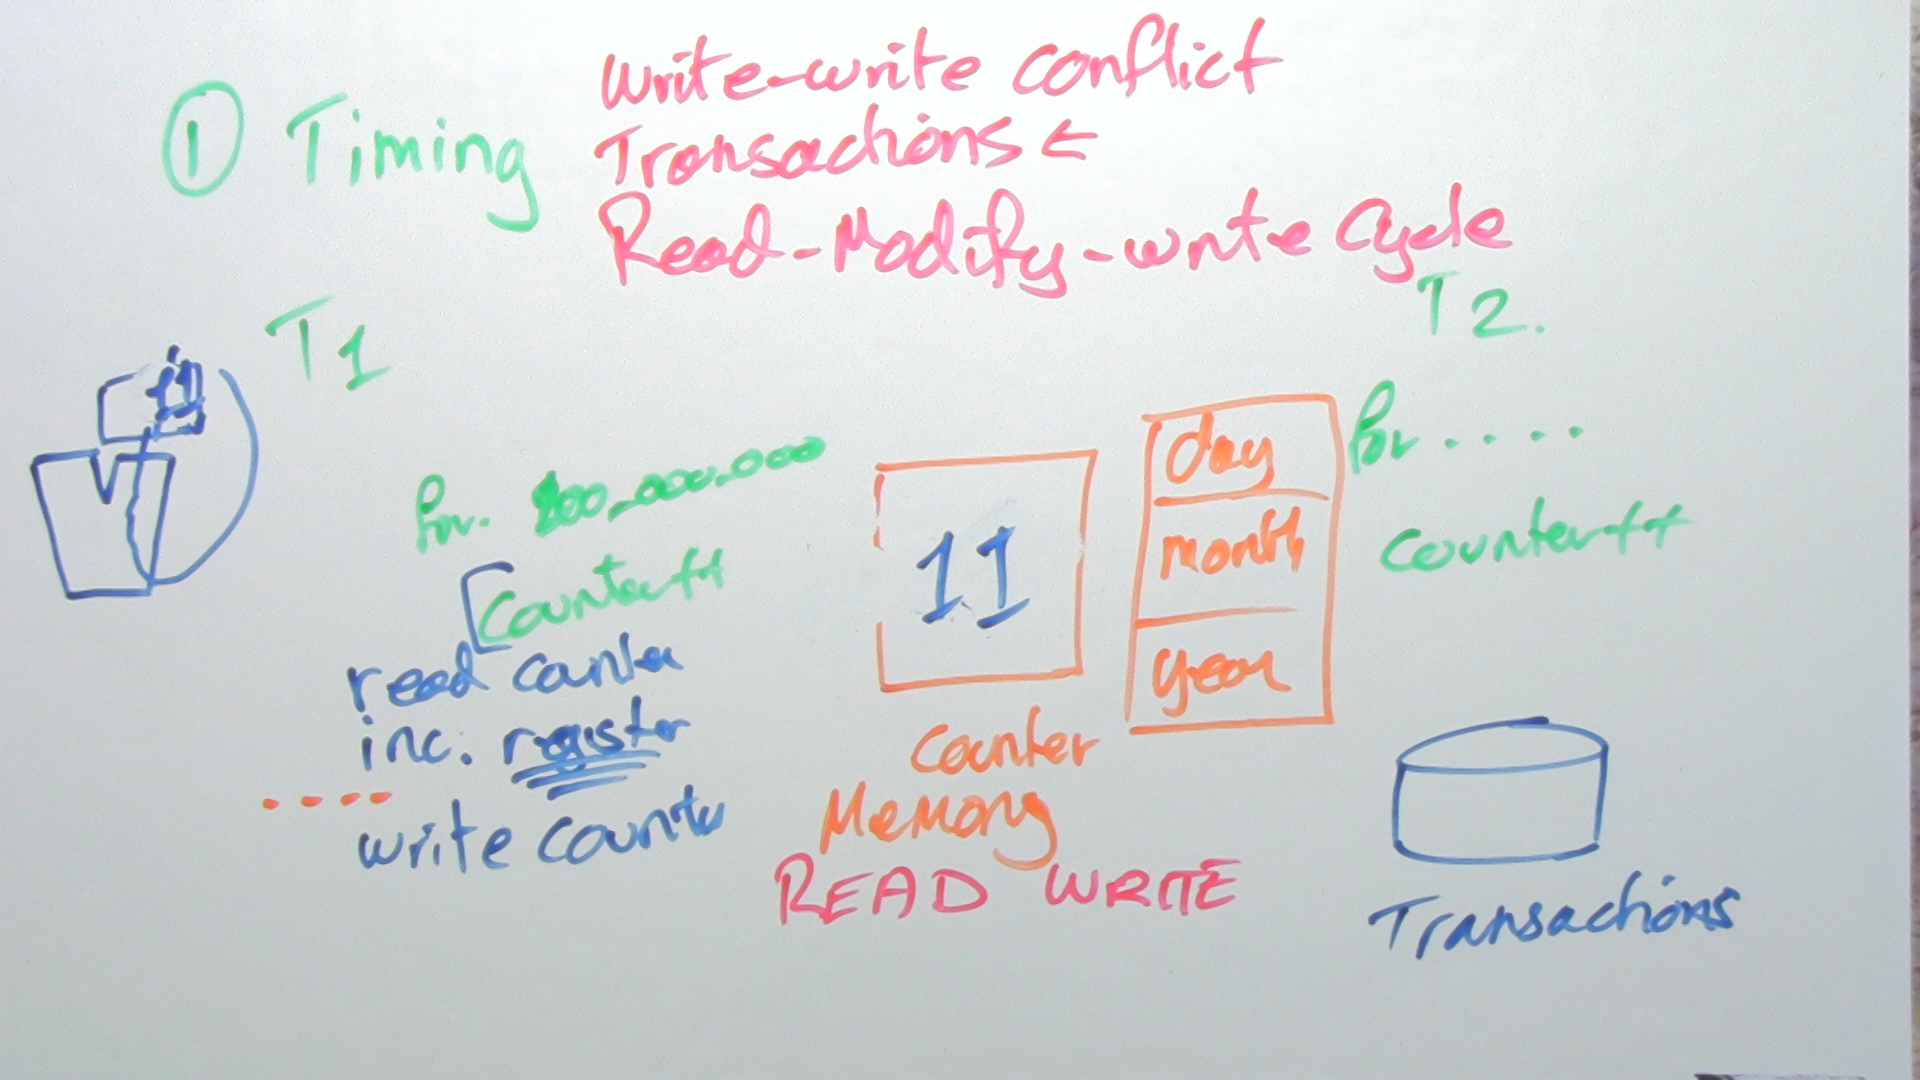 Write-write conflict
① Timing
Transactions ←
Read-Modify-write Cycle
T1
T2.
11
for. 100_000_000
Counter++
read counter
inc. register
....
write counter
11
Counter
Memory
READ WRITE
day
month
year
for .....
Counter++
Transactions